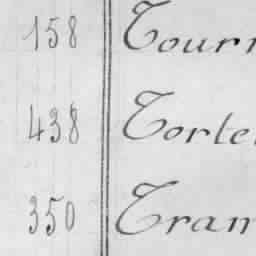 158 Tourn
438 Torte
350 Tram